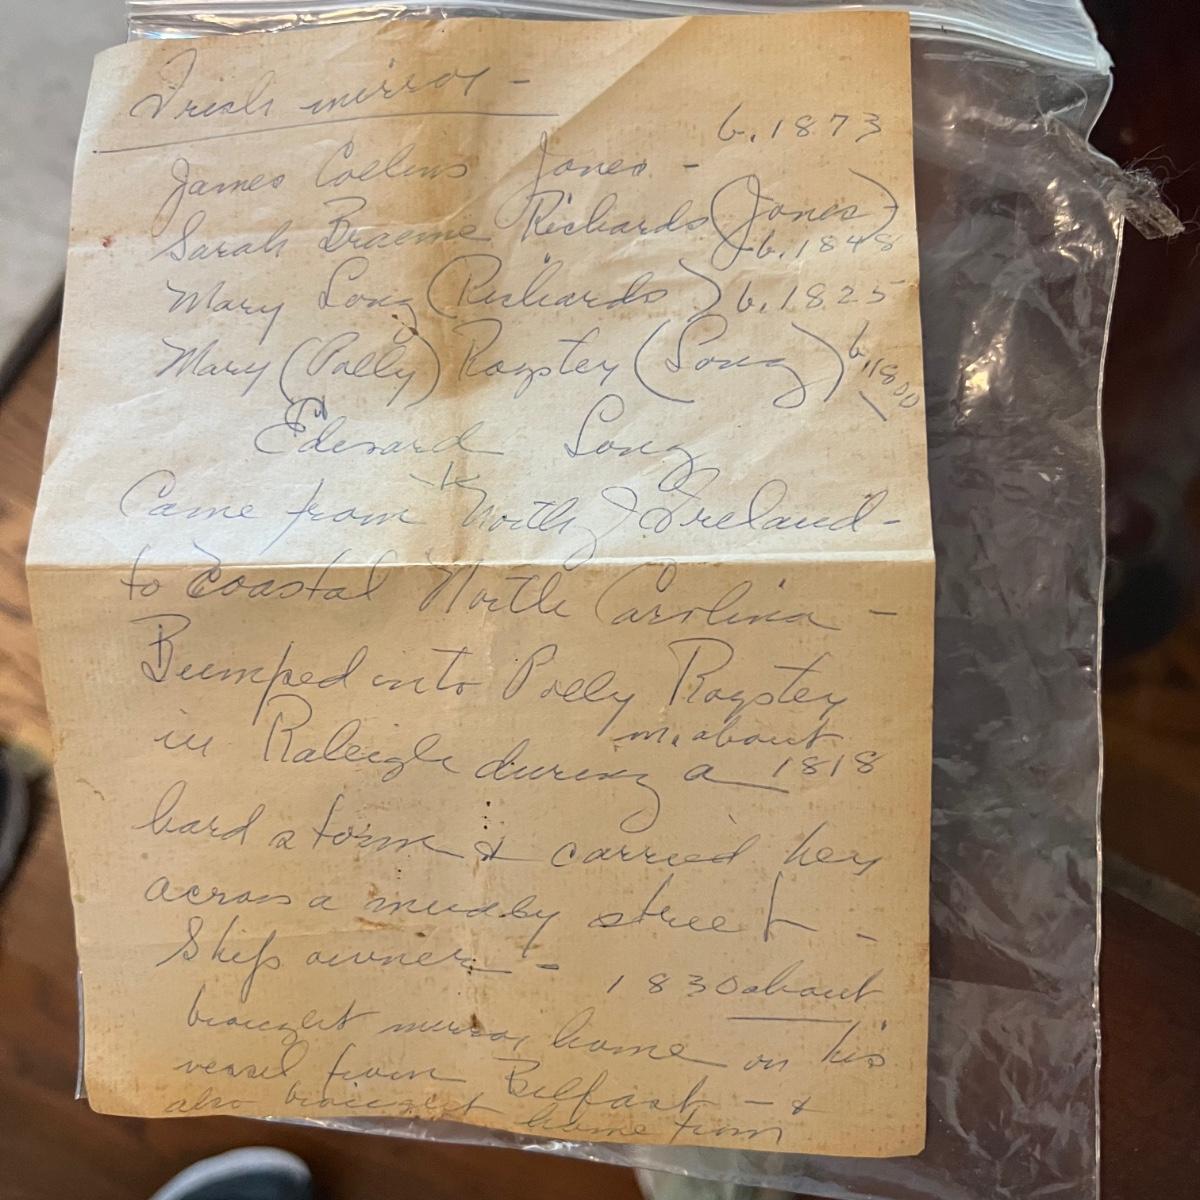 Irish mirror -
James Collins Jones - b. 1873
Sarah Braeme Richards (Jones) b. 1848
Mary Long (Richards) b. 1825
Mary (Polly) Royster (Long) b. 1800
Edward Long
Came from North Ireland -
to Coastal North Carolina -
Bumped into Polly Royster
m. about 1818
in Raleigh during a
hard storm & carried her
across a muddy street -
Ship owner - 1830 about
brought mirror home on his
vessel from Belfast - &
also brought home from